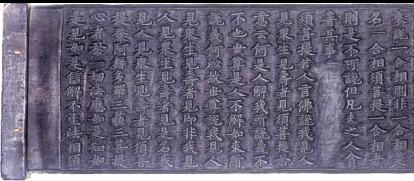 來說一合相則非一合相是
名一合相須菩提一合相者
則是不可說但凡夫之人貪
著其事
須菩提若人言佛說我見人
見衆生見壽者見須菩提於
意云何是人解我所說義不
不也世尊是人不解如來所
說義何以故世尊說我見人
見衆生見壽者見即非我見
人見衆生見壽者見是名我
見人見衆生見壽者見須菩
提發阿耨多羅三藐三菩提
心者於一切法應如是知如
是見如是信解不生法相須